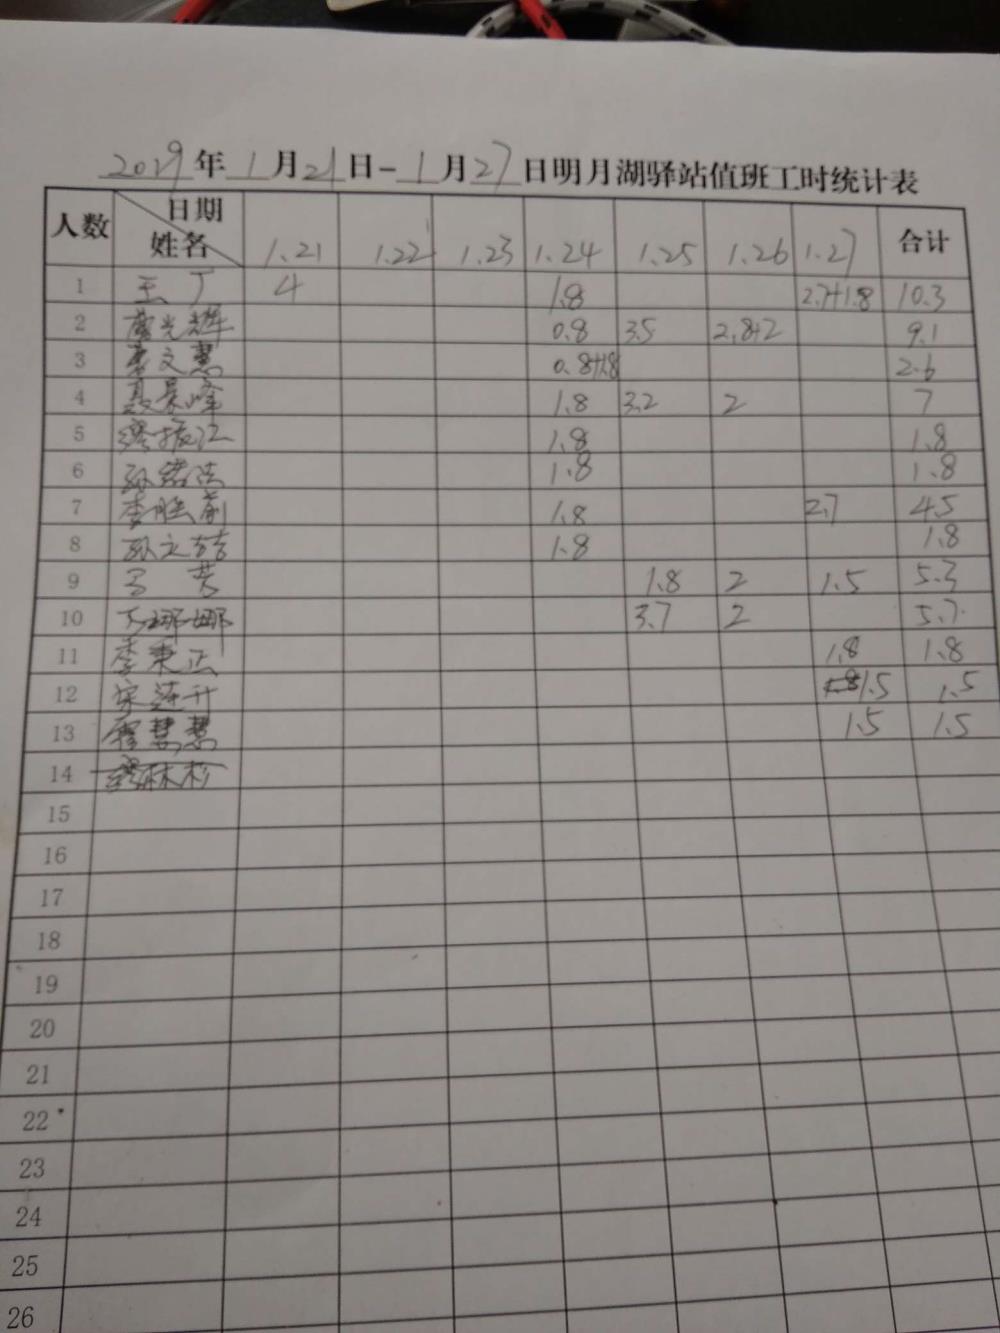 2019年1月21日-1月27日明月湖驿站值班工时统计表
人数 日期 姓名 1.21 1.22 1.23 1.24 1.25 1.26 1.27 合计
1 王丁 4 1.8 2.7+1.8 10.3
2 光辉 0.8 3.5 2.8+2 9.1
3 李文慧 0.8+1.8 2.6
4 聂景峰 1.8 3.2 2 7
5 缪振江 1.8 1.8
6 孙绪浩 1.8 1.8
7 李胜前 1.8 2.7 4.5
8 孙文喆 1.8 1.8
9 马芳 1.8 2 1.5 5.3
10 丁娜娜 3.7 2 5.7
11 李秉正 1.8 1.8
12 宋连升 1.5 1.5
13 慧慧 1.5 1.5
14 缪林杉
15
16
17
18
19
20
21
22
23
24
25
26